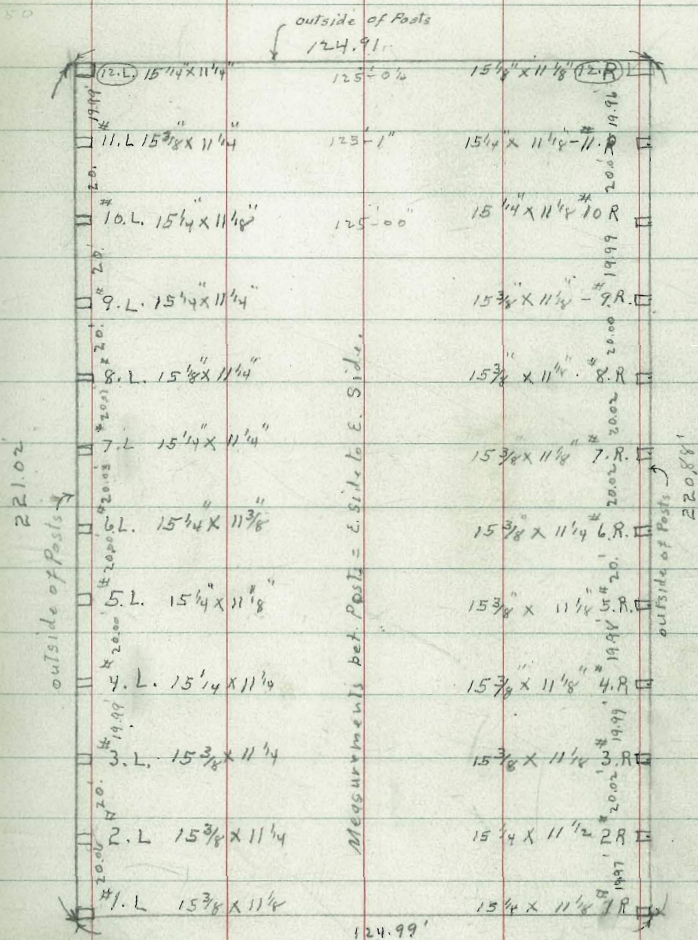 50
outside of Posts
124.91
12.L. 15 1/4" X 11 1/4" 125'-0 1/4 15 1/8" X 11 1/8" 12.R
19.99' 19.96
#11.L 15 3/8" X 11 1/4" 125'-1" 15 1/4" X 11 1/8"-#11.R
20.' 20.0
#10.L. 15 1/4" X 11 1/8" 125'-00" 15 1/4" X 11 1/8 #10 R
20.' 19.99
#9.L. 15 1/4" X 11 1/4" 15 3/8" X 11 1/8" - #9.R.
20.' 20.00
#8.L. 15 1/8" X 11 1/4" 15 3/8" X 11 1/8" #8.R
20.01 20.02
#7.L 15 1/4" X 11 1/4" 15 3/8" X 11 1/8" #7.R.
20.03 20.02
#6.L. 15 1/4" X 11 3/8" 15 3/8" X 11 1/4 #6.R.
20.00 20.'
#5.L. 15 1/4" X 11 1/8" 15 3/8" X 11 1/8" #5.R.
20.00' 19.98'
#4.L. 15 1/4 X 11 1/4 15 3/8" X 11 1/8" #4.R
19.99' 19.99'
#3.L. 15 3/8 X 11 1/4 15 3/8 X 11 1/8 #3.R
20.' 20.02'
#2.L 15 3/8 X 11 1/4 15 1/4 X 11 1/2 2R
20.00 19.97'
#1.L 15 3/8 X 11 1/8 15 1/4 X 11 1/8 #1R
124.99'
221.02'
outside of Posts
Measurements bet. Posts = E. Side to E. Side.
outside of Posts
220.88'